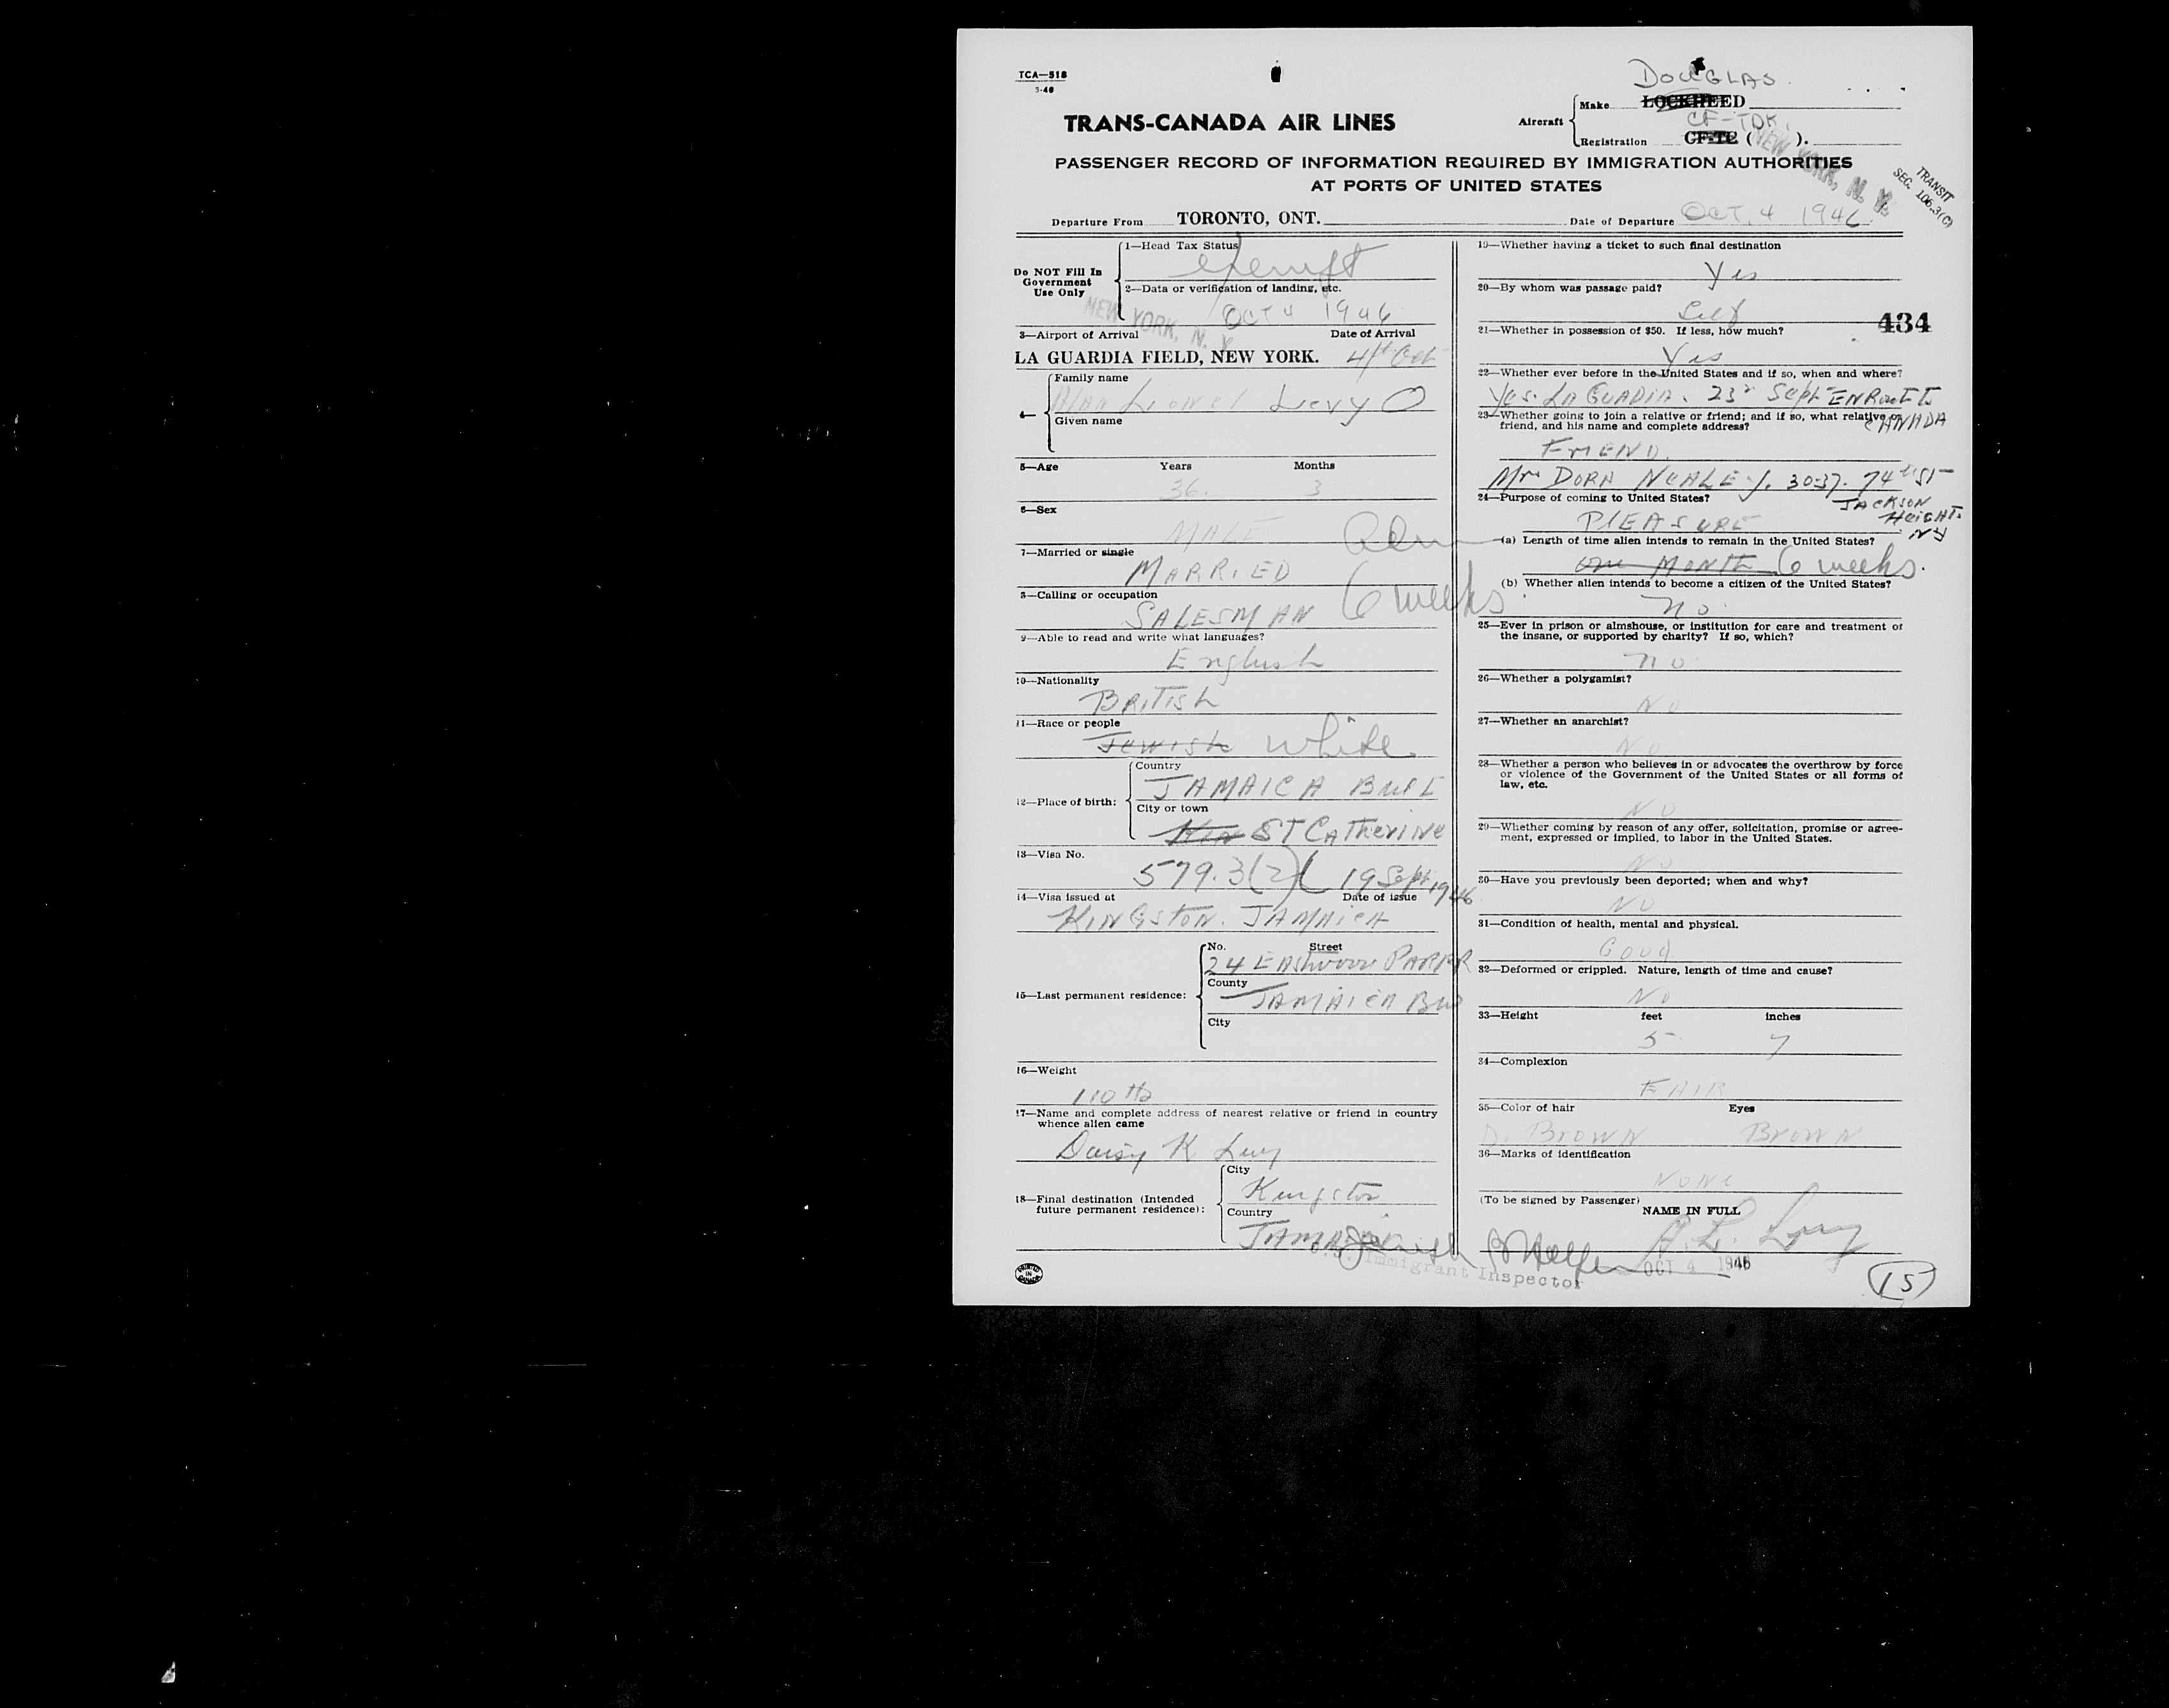 TCA—518
3-46
DOUGLAS
TRANS-CANADA AIR LINES
Aircraft
Make LOCKHEED
CF-TDK.
Registration CF-TC ( ).
NEW YORK, N. Y.
TRANSIT
SEC. 106.3(C)
PASSENGER RECORD OF INFORMATION REQUIRED BY IMMIGRATION AUTHORITIES
AT PORTS OF UNITED STATES
Departure From TORONTO, ONT. Date of Departure OCT. 4 1946
Do NOT Fill In
Government
Use Only
1—Head Tax Status
exempt
2—Data or verification of landing, etc.
OCT 4 1946
NEW YORK, N. Y.
3—Airport of Arrival Date of Arrival
LA GUARDIA FIELD, NEW YORK. 4th Oct
4—
Family name
Alan Lionel Levy
Given name
5—Age Years Months
36. 3
6—Sex
MALE
7—Married or single
MARRIED
8—Calling or occupation
SALESMAN 6 weeks.
9—Able to read and write what languages?
English
10—Nationality
BRITISh
11—Race or people
Jewish white
12—Place of birth:
Country
JAMAICA
City or town
Kin ST CAThERINE
13—Visa No.
579.3(2) 19 Sept 1946
14—Visa issued at Date of issue
KINGSTON. JAMAICA
15—Last permanent residence:
No. Street
24 EASTWOOD PARK R
County
JAMAICA BWI
City
16—Weight
110 lb
17—Name and complete address of nearest relative or friend in country
whence alien came
Daisy K Levy
18—Final destination (Intended
future permanent residence):
City
Kingston
Country
JAMAICA
PRINTED
IN
CANADA
19—Whether having a ticket to such final destination
Yes
20—By whom was passage paid?
Self
434
21—Whether in possession of $50. If less, how much?
Yes
22—Whether ever before in the United States and if so, when and where?
Yes. LA GUADIA. 23r Sept ENROUTE To
CANADA
23—Whether going to join a relative or friend; and if so, what relative or
friend, and his name and complete address?
FrIEND.
Mrs DORA NEALEY. 30-37. 74th ST
JACKSON
HEIGHTS
NY
24—Purpose of coming to United States?
PLEASURE
(a) Length of time alien intends to remain in the United States?
one MONTH 6 weeks.
(b) Whether alien intends to become a citizen of the United States?
no
25—Ever in prison or almshouse, or institution for care and treatment of
the insane, or supported by charity? If so, which?
no
26—Whether a polygamist?
No
27—Whether an anarchist?
No
28—Whether a person who believes in or advocates the overthrow by force
or violence of the Government of the United States or all forms of
law, etc.
NO
29—Whether coming by reason of any offer, solicitation, promise or agree-
ment, expressed or implied, to labor in the United States.
No
30—Have you previously been deported; when and why?
NO
31—Condition of health, mental and physical.
Good
32—Deformed or crippled. Nature, length of time and cause?
No
33—Height feet inches
5 7
34—Complexion
FAIR
35—Color of hair Eyes
D. BROWN BrowN
36—Marks of identification
NONE
(To be signed by Passenger)
NAME IN FULL
A. L. Levy
Immigrant Inspector
OCT 4 1946
15